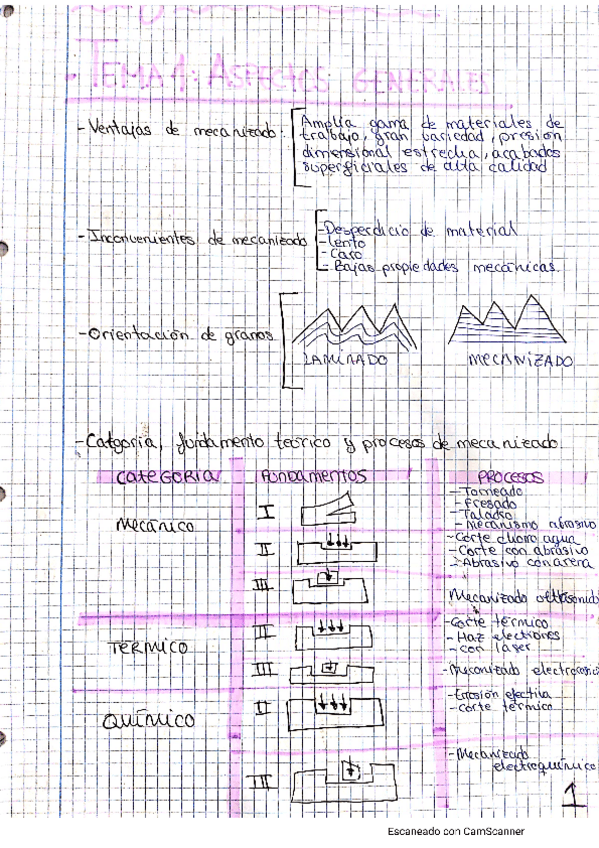 - TEMA 1: ASPECTOS GENERALES
- Ventajas de mecanizado
Amplia gama de materiales de
trabajo, gran variedad, presión
dimensional estrecha, acabados
superficiales de alta calidad
- Inconvenientes de mecanizado
- Desperdicio de material
- Lento
- Caro
- Bajas propiedades mecánicas.
- Orientación de granos
LAMINADO
MECANIZADO
- Catgoria, fundamento teórico y procesos de mecanizado.
CATEGORIA FUNDAMENTOS PROCESOS
MECÁNICO
I
- Torneado
- Fresado
- Taladro
- Mecanismo abrasivo
II
- Corte chorro agua
- Corte con abrasivo
- Abrasivo con arena
III
Mecanizado ultrasonido
TÉRMICO
II
- Corte térmico
- Haz electrones
- con láser
III
- Mecanizado
QUÍMICO
II
- Corte térmico
III
- Mecanizado
electroquímico
1
Escaneado con CamScanner